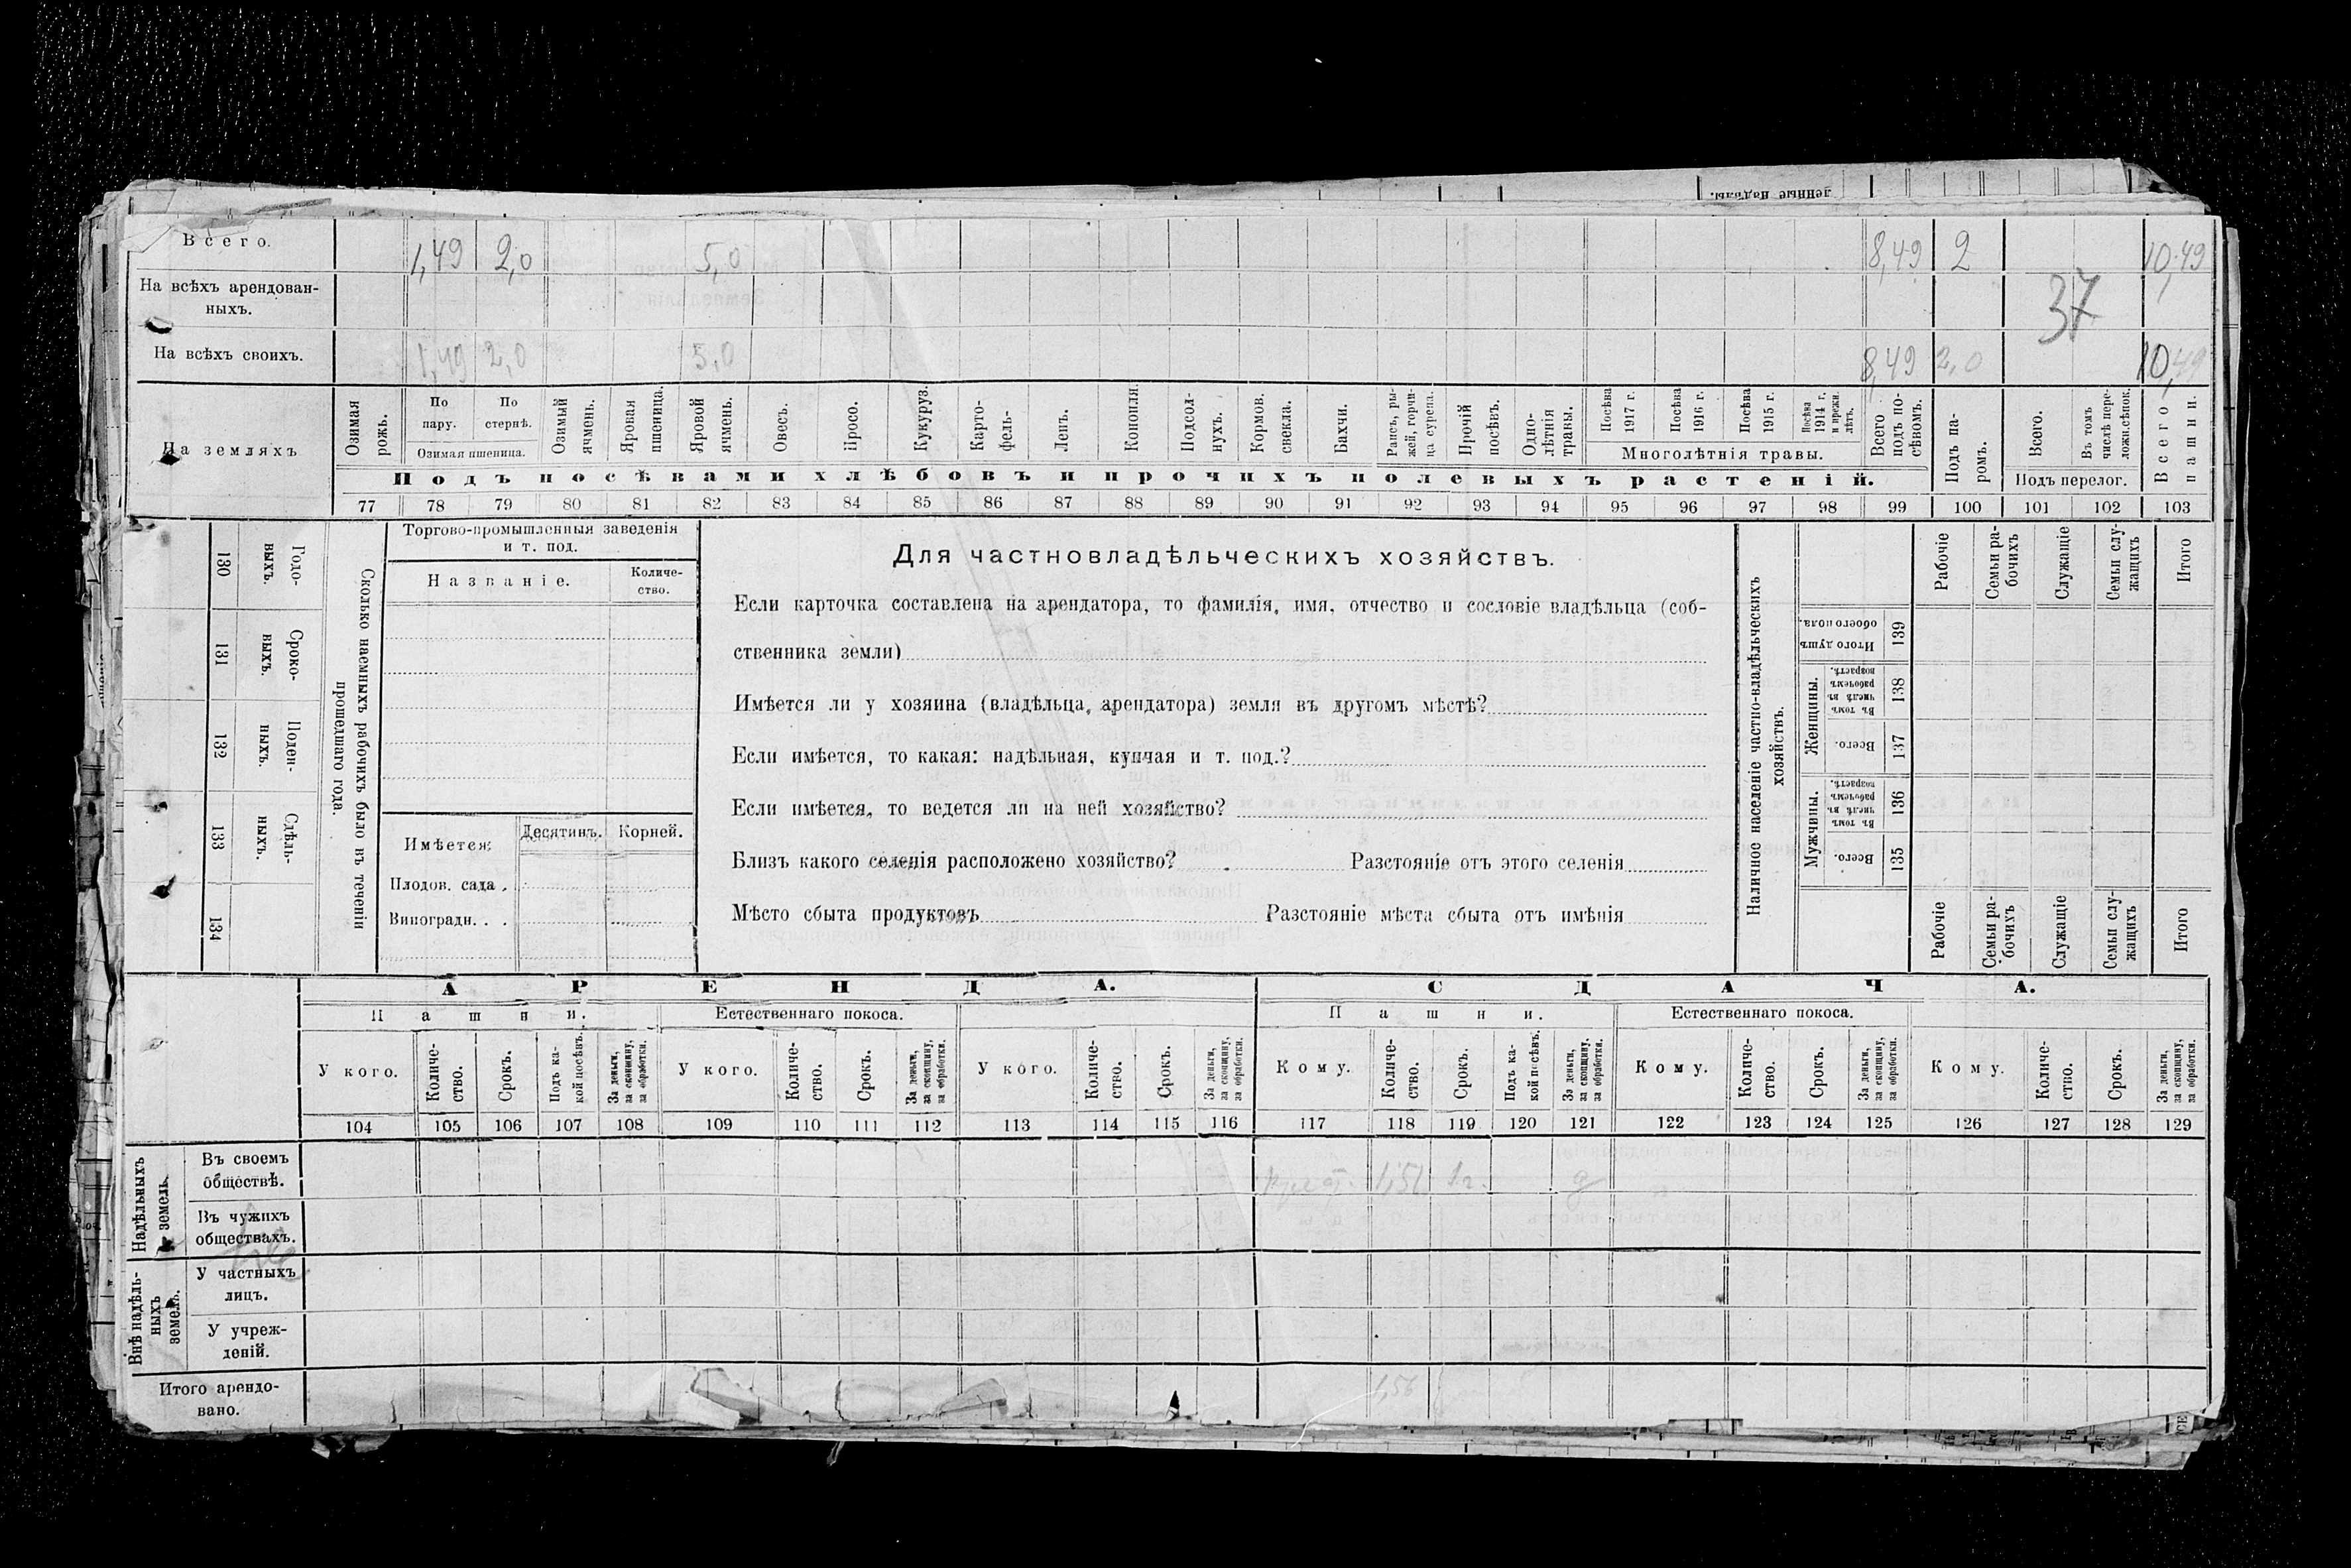 денные надѣлы.
Всего. 1,49 2,0 5,0 8,49 2 10,49
На всѣхъ арендован-
ныхъ. 37
На всѣхъ своихъ. 1,49 2,0 5,0 8,49 2,0 10,49
На земляхъ
Озимая рожь.
По пару.
По стернѣ.
Озимая пшеница.
Озимый ячмень.
Яровая пшеница.
Яровой ячмень.
Овесъ.
Просо.
Кукуруз.
Карто-
фель-
Ленъ.
Конопля.
Подсол-
нухъ.
Кормов. свекла.
Бахчи.
Рапсъ, ры-
жей, горчи-
ца сурепа.
Прочій посѣвъ.
Одно-
лѣтнія травы.
Посѣва 1917 г.
Посѣва 1916 г.
Посѣва 1915 г.
Посѣва 1914 г. и прежн. лѣтъ.
Многолѣтнія травы.
Всего подъ по-
сѣвомъ.
Подъ па-
ромъ.
Всего.
Въ томъ числѣ пере-
ложн.сѣнок.
Подъ перелог.
Всего пашни.
Подъ посѣвами хлѣбовъ и прочихъ полевыхъ растеній.
77 78 79 80 81 82 83 84 85 86 87 88 89 90 91 92 93 94 95 96 97 98 99 100 101 102 103
Сколько наемныхъ рабочихъ было въ теченіи
прошедшаго года.
Годо-
выхъ.
130
Сроко-
выхъ.
131
Поден-
ныхъ.
132
Сдѣль-
ныхъ.
133
134
Торгово-промышленныя заведенія
и т. под.
Названіе. Количе-
ство.
Имѣется: Десятинъ. Корней.
Плодов. сада .
Виноградн. . .
Для частновладѣльческихъ хозяйствъ.
Если карточка составлена на арендатора, то фамилія, имя, отчество и сословіе владѣльца (соб-
ственника земли)
Имѣется ли у хозяина (владѣльца, арендатора) земля въ другомъ мѣстѣ?
Если имѣется, то какая: надѣльная, купчая и т. под.?
Если имѣется, то ведется ли на ней хозяйство?
Близъ какого селенія расположено хозяйство? Разстояніе отъ этого селенія
Мѣсто сбыта продуктовъ Разстояніе мѣста сбыта отъ имѣнія
Наличное населеніе частно-владѣльческихъ
хозяйствъ.
Рабочіе
Семьи ра-
бочихъ
Служащіе
Семьи слу-
жащихъ
Итого
Итого душъ обоего пола.
139
Женщины.
Въ томъ числѣ въ рабочемъ возрастѣ.
138
Всего.
137
Мужчины.
Въ томъ числѣ въ рабочемъ возрастѣ.
136
Всего.
135
Рабочіе
Семьи ра-
бочихъ
Служащіе
Семьи слу-
жащихъ
Итого
АРЕНДА. СДАЧА.
Пашни. Естественнаго покоса. Пашни. Естественнаго покоса.
У кого.
Количе-
ство.
Срокъ.
Подъ ка-
кой посѣвъ.
За деньги, за скопщину, за обработки.
У кого.
Количе-
ство.
Срокъ.
За деньги, за скопщину, за обработки.
У кого.
Количе-
ство.
Срокъ.
За деньги, за скопщину, за обработки.
Кому.
Количе-
ство.
Срокъ.
Подъ ка-
кой посѣвъ.
За деньги, за скопщину, за обработки.
Кому.
Количе-
ство.
Срокъ.
За деньги, за скопщину, за обработки.
Кому.
Количе-
ство.
Срокъ.
За деньги, за скопщину, за обработки.
104 105 106 107 108 109 110 111 112 113 114 115 116 117 118 119 120 121 122 123 124 125 126 127 128 129
Надѣльныхъ земель.
Въ своемъ
обществѣ. 1,51 1 г. д
Въ чужихъ
обществахъ.
Внѣ надѣль-
ныхъ земель.
У частныхъ
лицъ.
У учреж-
деній.
Итого арендо-
вано. 1,56